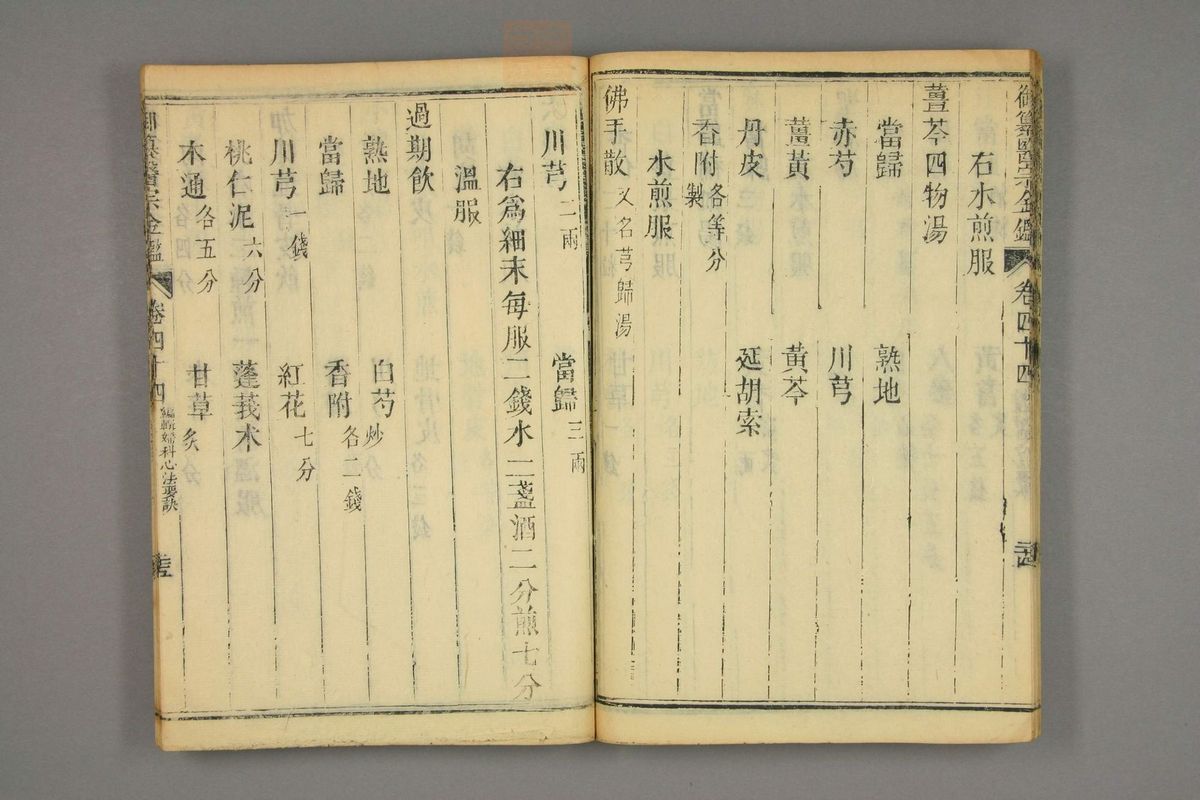 御纂醫宗金鑑 卷四十四
右水煎服
薑芩四物湯
當歸 熟地
赤芍 川芎
薑黃 黃芩
丹皮 延胡索
香附製各等分
水煎服
佛手散又名芎歸湯
川芎二兩 當歸三兩
右為細末每服二錢水一盞酒二分煎七分
溫服
過期飲
熟地 白芍炒
當歸 香附各二錢
川芎一錢 紅花七分
桃仁泥六分 蓬莪术
木通各五分 甘草炙
御纂醫宗金鑑 卷四十四 編輯婦科心法要訣